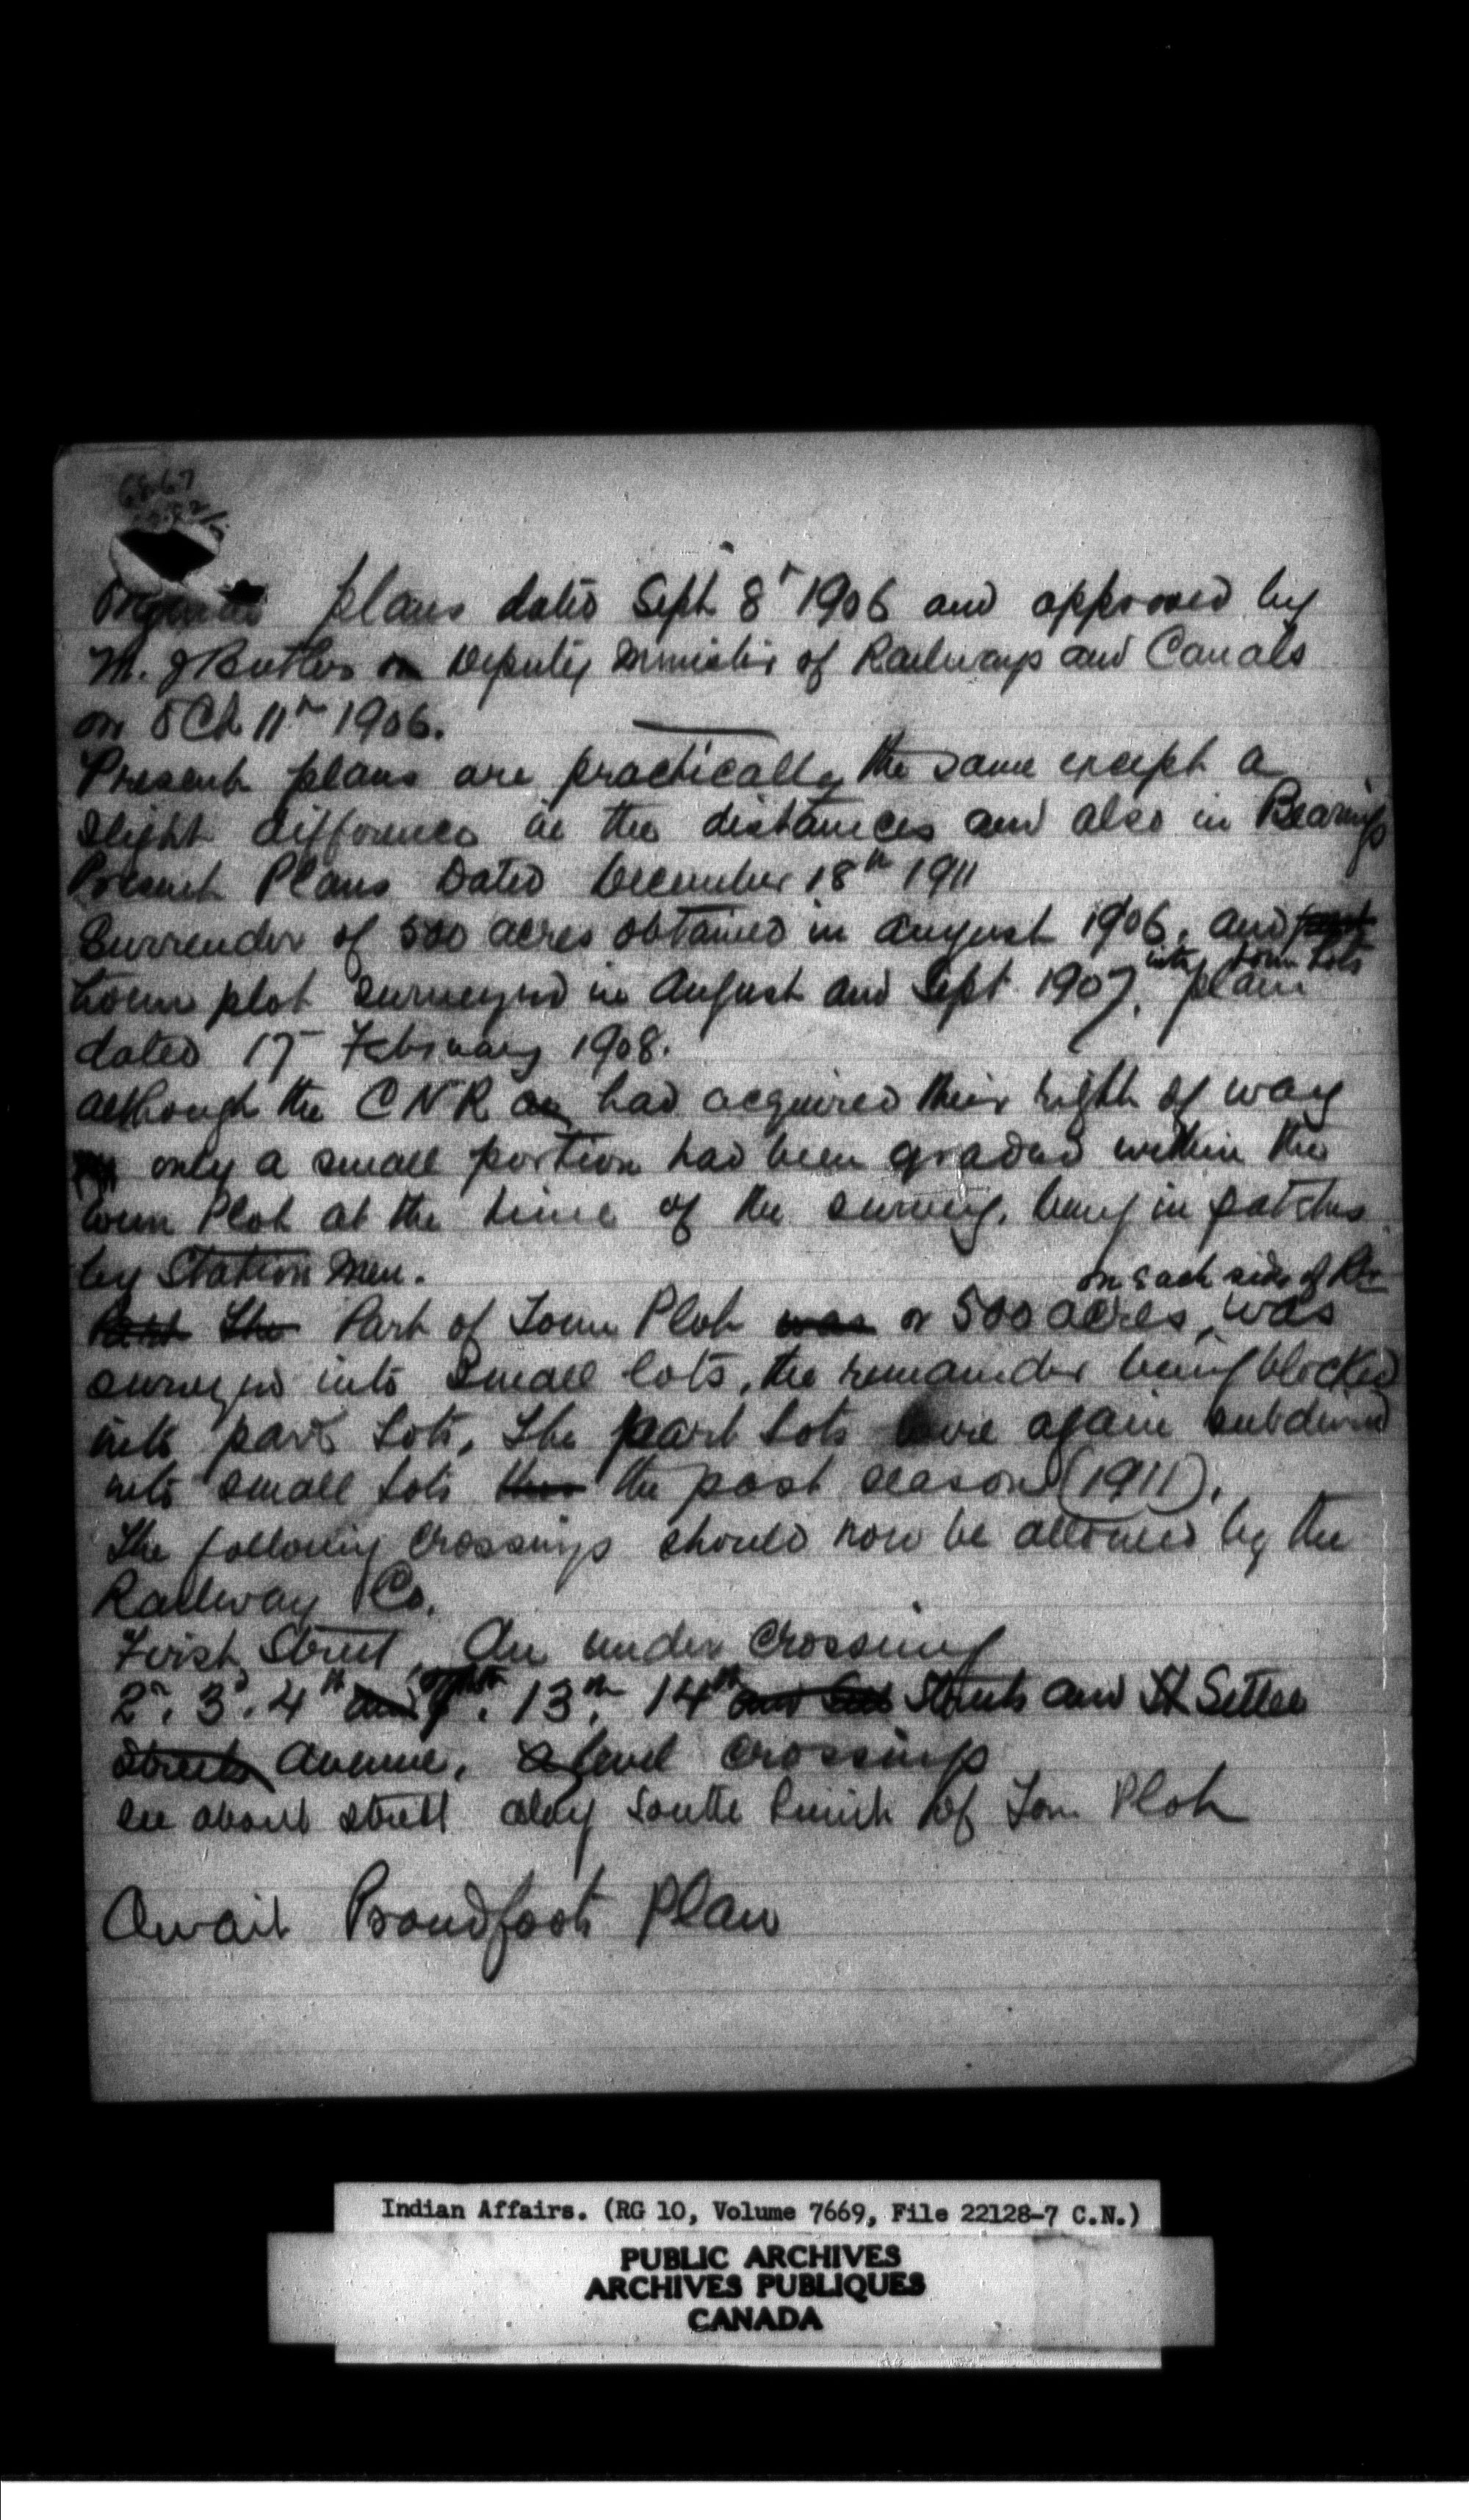 plans dated Sept 8th 1906 and approved by
M. J Butler Deputy Minister of Railways and Canals
on Oct 11th 1906.
Present plans are practically the same except a
slight difference in the distances and also in Bearings
Present Plans Dated December 18th 1911
Surrender of 500 acres obtained in August 1906, and part
into Town Lots
town plot surveyed in August and Sept 1907. plan
dated 17 February 1908.
although the CNR had acquired their right of way
only a small portion had been graded within the
town Plot at the time of the survey, being in patches
by Station Men.
on each side of Ry
Part The Part of Town Plot was or 500 acres, was
surveyed into small lots, the remainder being blocked
into park Lots, The park Lots were again subdivided
into small Lots the past season (1911).
The following crossings should now be allowed by the
Railway Co.
First Street, An under crossing
2nd, 3d, 4th and 13th, 14th and Streets and St Settee
Streets Avenue, a level crossings
see about street along South limit of Town Plot
Await Proudfoots Plan
Indian Affairs. (RG 10, Volume 7669, File 22128-7 C.N.)
PUBLIC ARCHIVES
ARCHIVES PUBLIQUES
CANADA